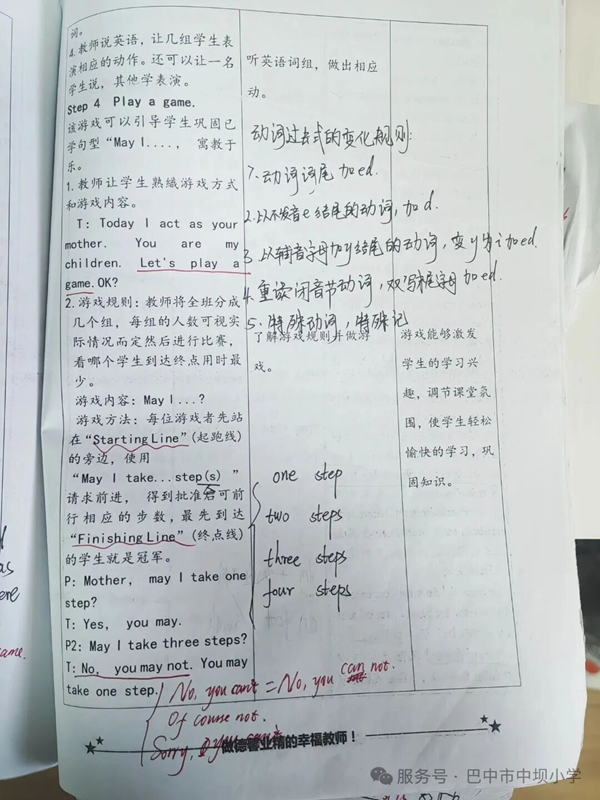 词。
4.教师说英语，让几组学生表
演相应的动作。还可以让一名
学生说，其他学表演。
Step 4 Play a game.
该游戏可以引导学生巩固已
学句型“May I....，寓教于
乐。
1.教师让学生熟織游戏方式
和游戏内容。
T: Today I act as your
mother. You are my
children. Let's play a
game.OK?
2.游戏规则：教师将全班分成
几个组，每组的人数可视实
际情况而定然后进行比赛，
看哪个学生到达终点用时最
少。
游戏内容：May I...?
游戏方法：每位游戏者先站
在“Starting Line”(起跑线)
的旁边，使用
“May I take...step(s) ”
请求前进， 得到批准后可前
行相应的步数，最先到达
“Finishing Line”(终点线)
的学生就是冠军。
P: Mother, may I take one
step?
T: Yes, you may.
P2: May I take three steps?
T: No, you may not. You may
take one step.
听英语词组，做出相应
动。
动词过去式的变化规则：
1.动词词尾加ed.
2.以不发音e结尾的动词，加d.
3.以辅音字母加y结尾的动词，变y为i加ed.
4.重读闭音节动词，双写尾字母加ed.
5.特殊动词，特殊记
了解游戏规则并做游
戏。
one step
two steps
three steps
four steps
游戏能够激发
学生的学习兴
趣，调节课堂氛
围，使学生轻松
愉快的学习，巩
固知识。
No, you can't = No, you can not.
Of course not.
Sorry, you can't
做德馨业精的幸福教师！
ere
ame.
服务号·巴中市中坝小学